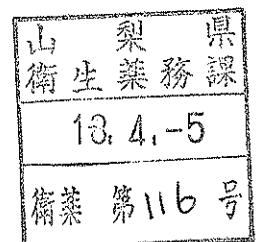 山梨県
衛生薬務課
13.4.-5
衛薬 第116号